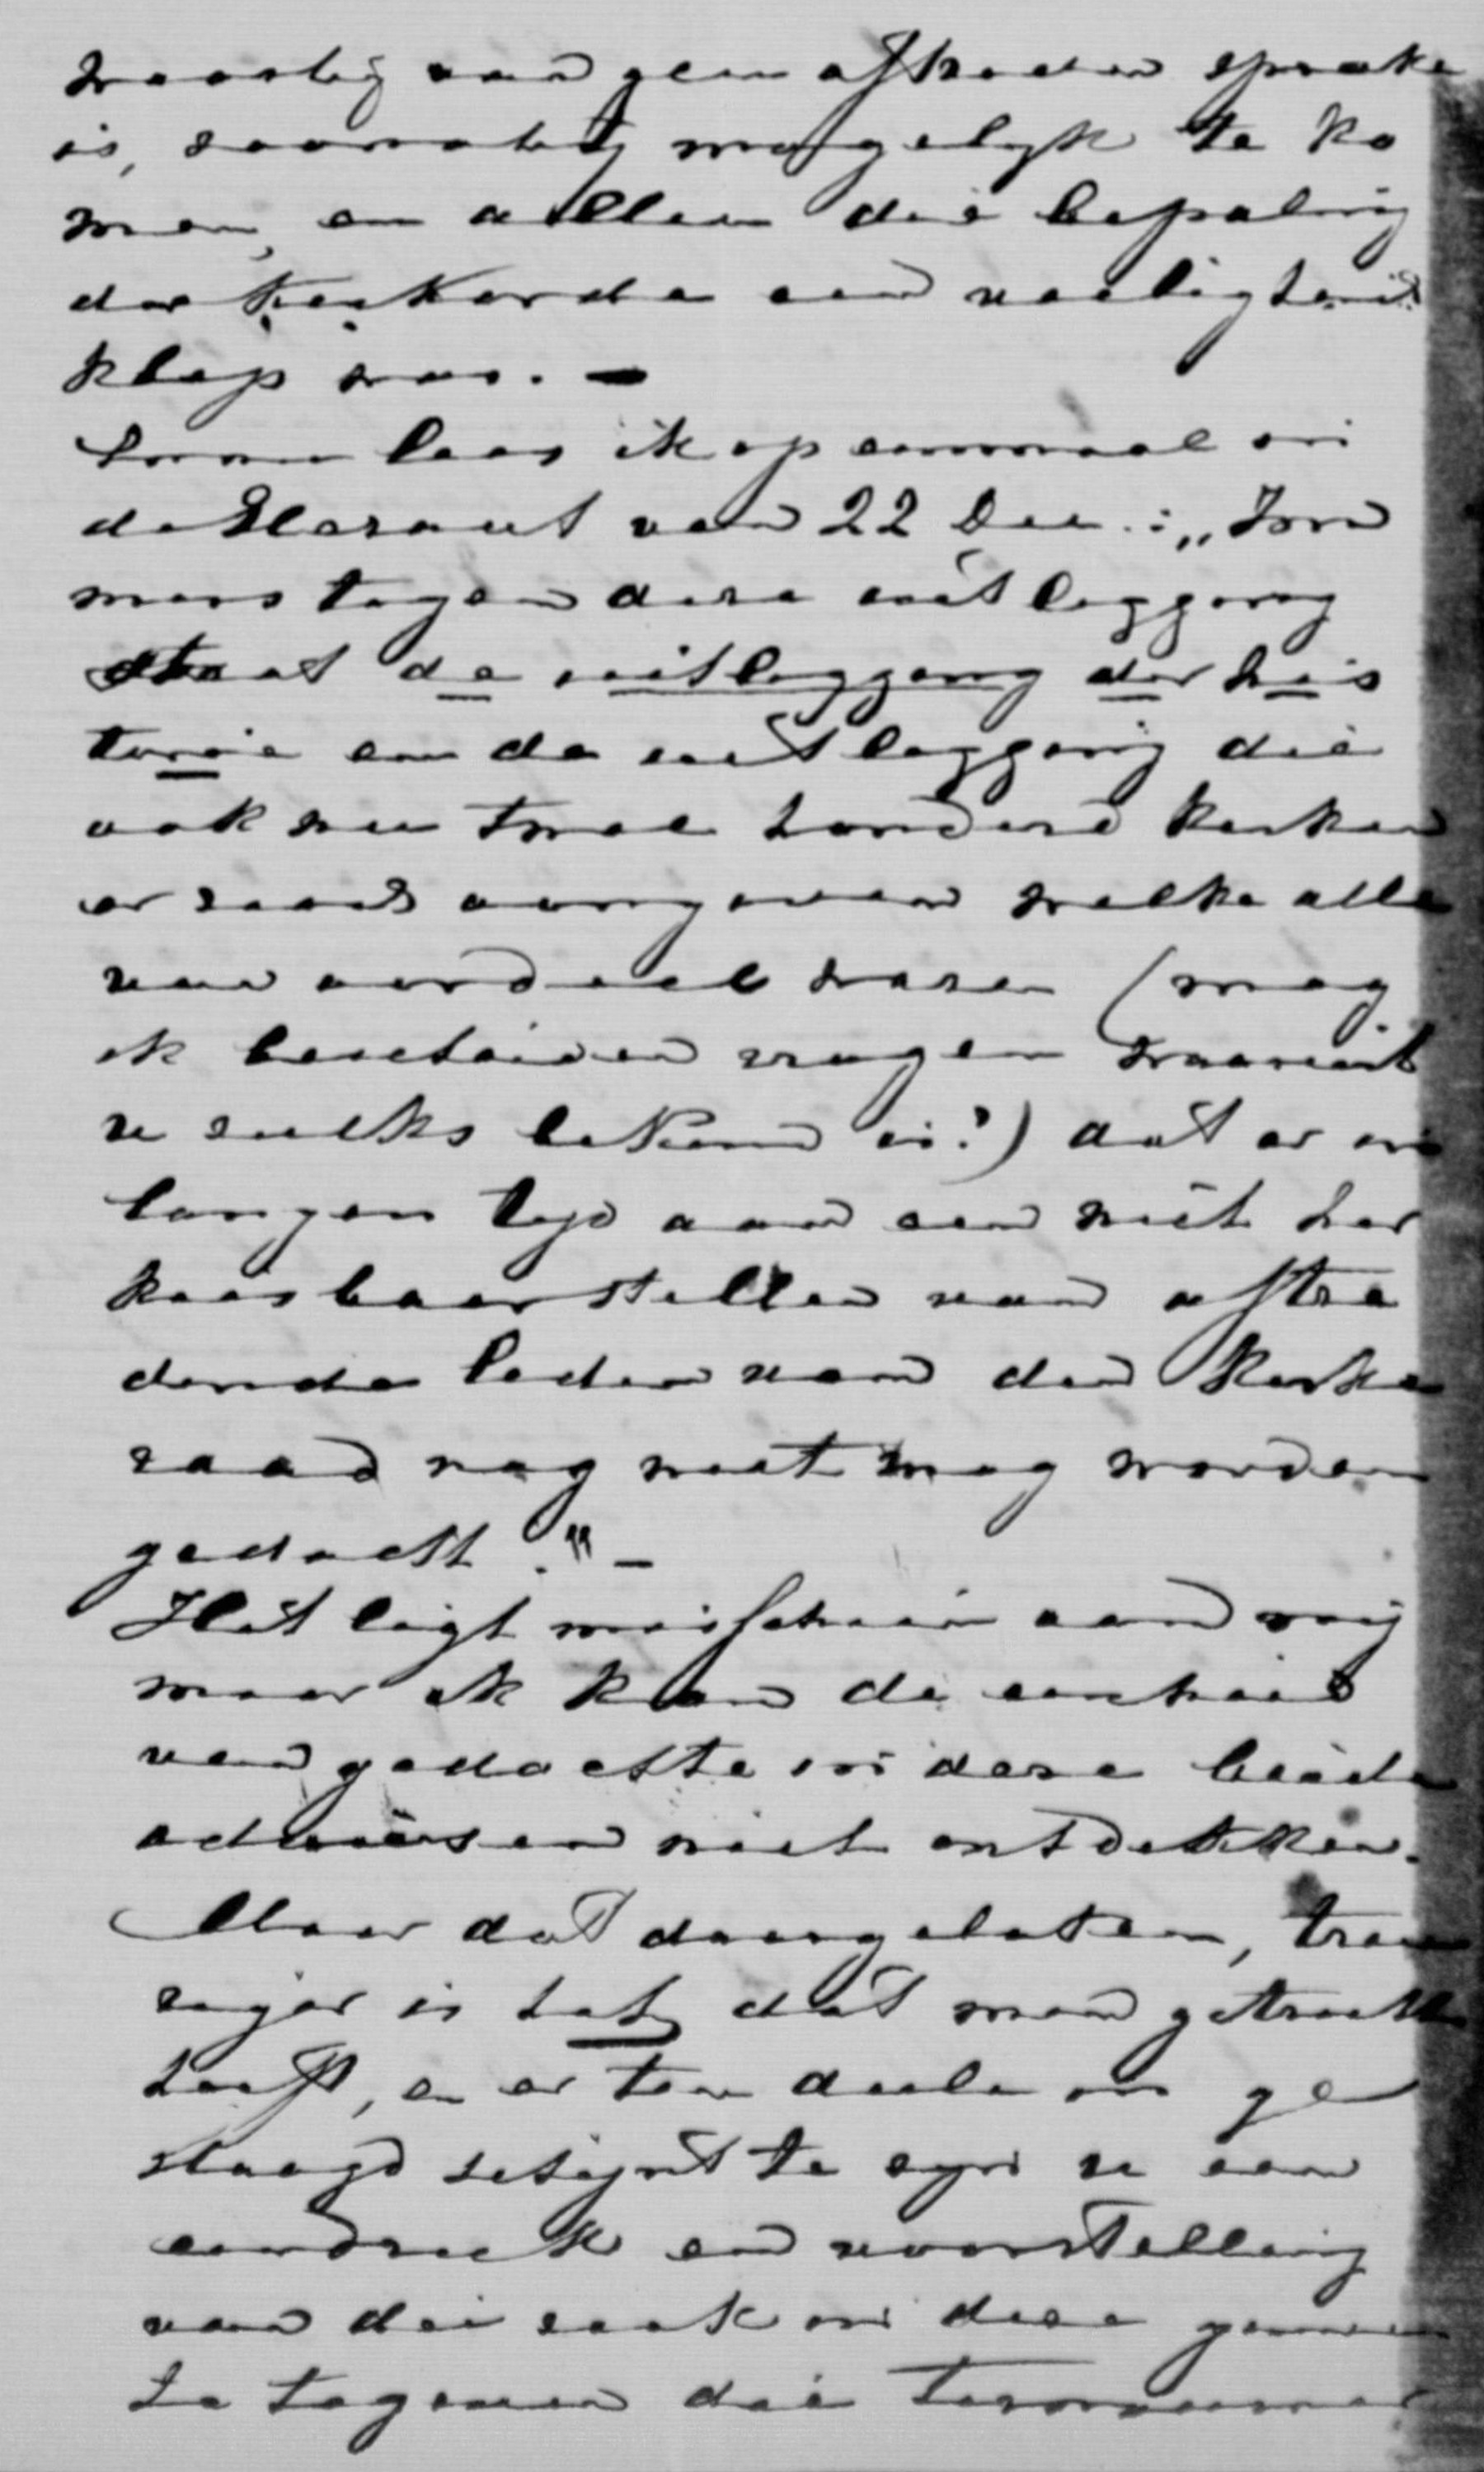 waarbij van geen aftreden sprake
is, voorstel mogelyk te ko
men, en alleen die bepaling
der kerkorde een veiligheids
klep was. —
Daar lees ik op eenmaal in
de Heraut van 22 Dec.: „Im
mers tegen deze uitlegging
staat de uitlegging der his
torie en de uitlegging die
ook nu twee honderd kerken
er aan geven welke alle
van oordeel waren (mag
ik bescheiden vragen waaruit
u zulks bekend is?) dat er in
langen tyd aan een niet her
kiesbaar stellen van aftre
dende leden van den kerke
raad nog niet mag worden
gedacht." —
Het ligt misschien aan mij
maar ik kan de eenheid
van gedachte in deze beide
adviezen niet ontdekken.
Maar dat daargelaten, treu
riger is het, dat men getracht
heeft, en er ten deele in ge
slaagd schynt te zyn u een
indruk en voorstelling
van die zaak in deze gemeen
te te geven die